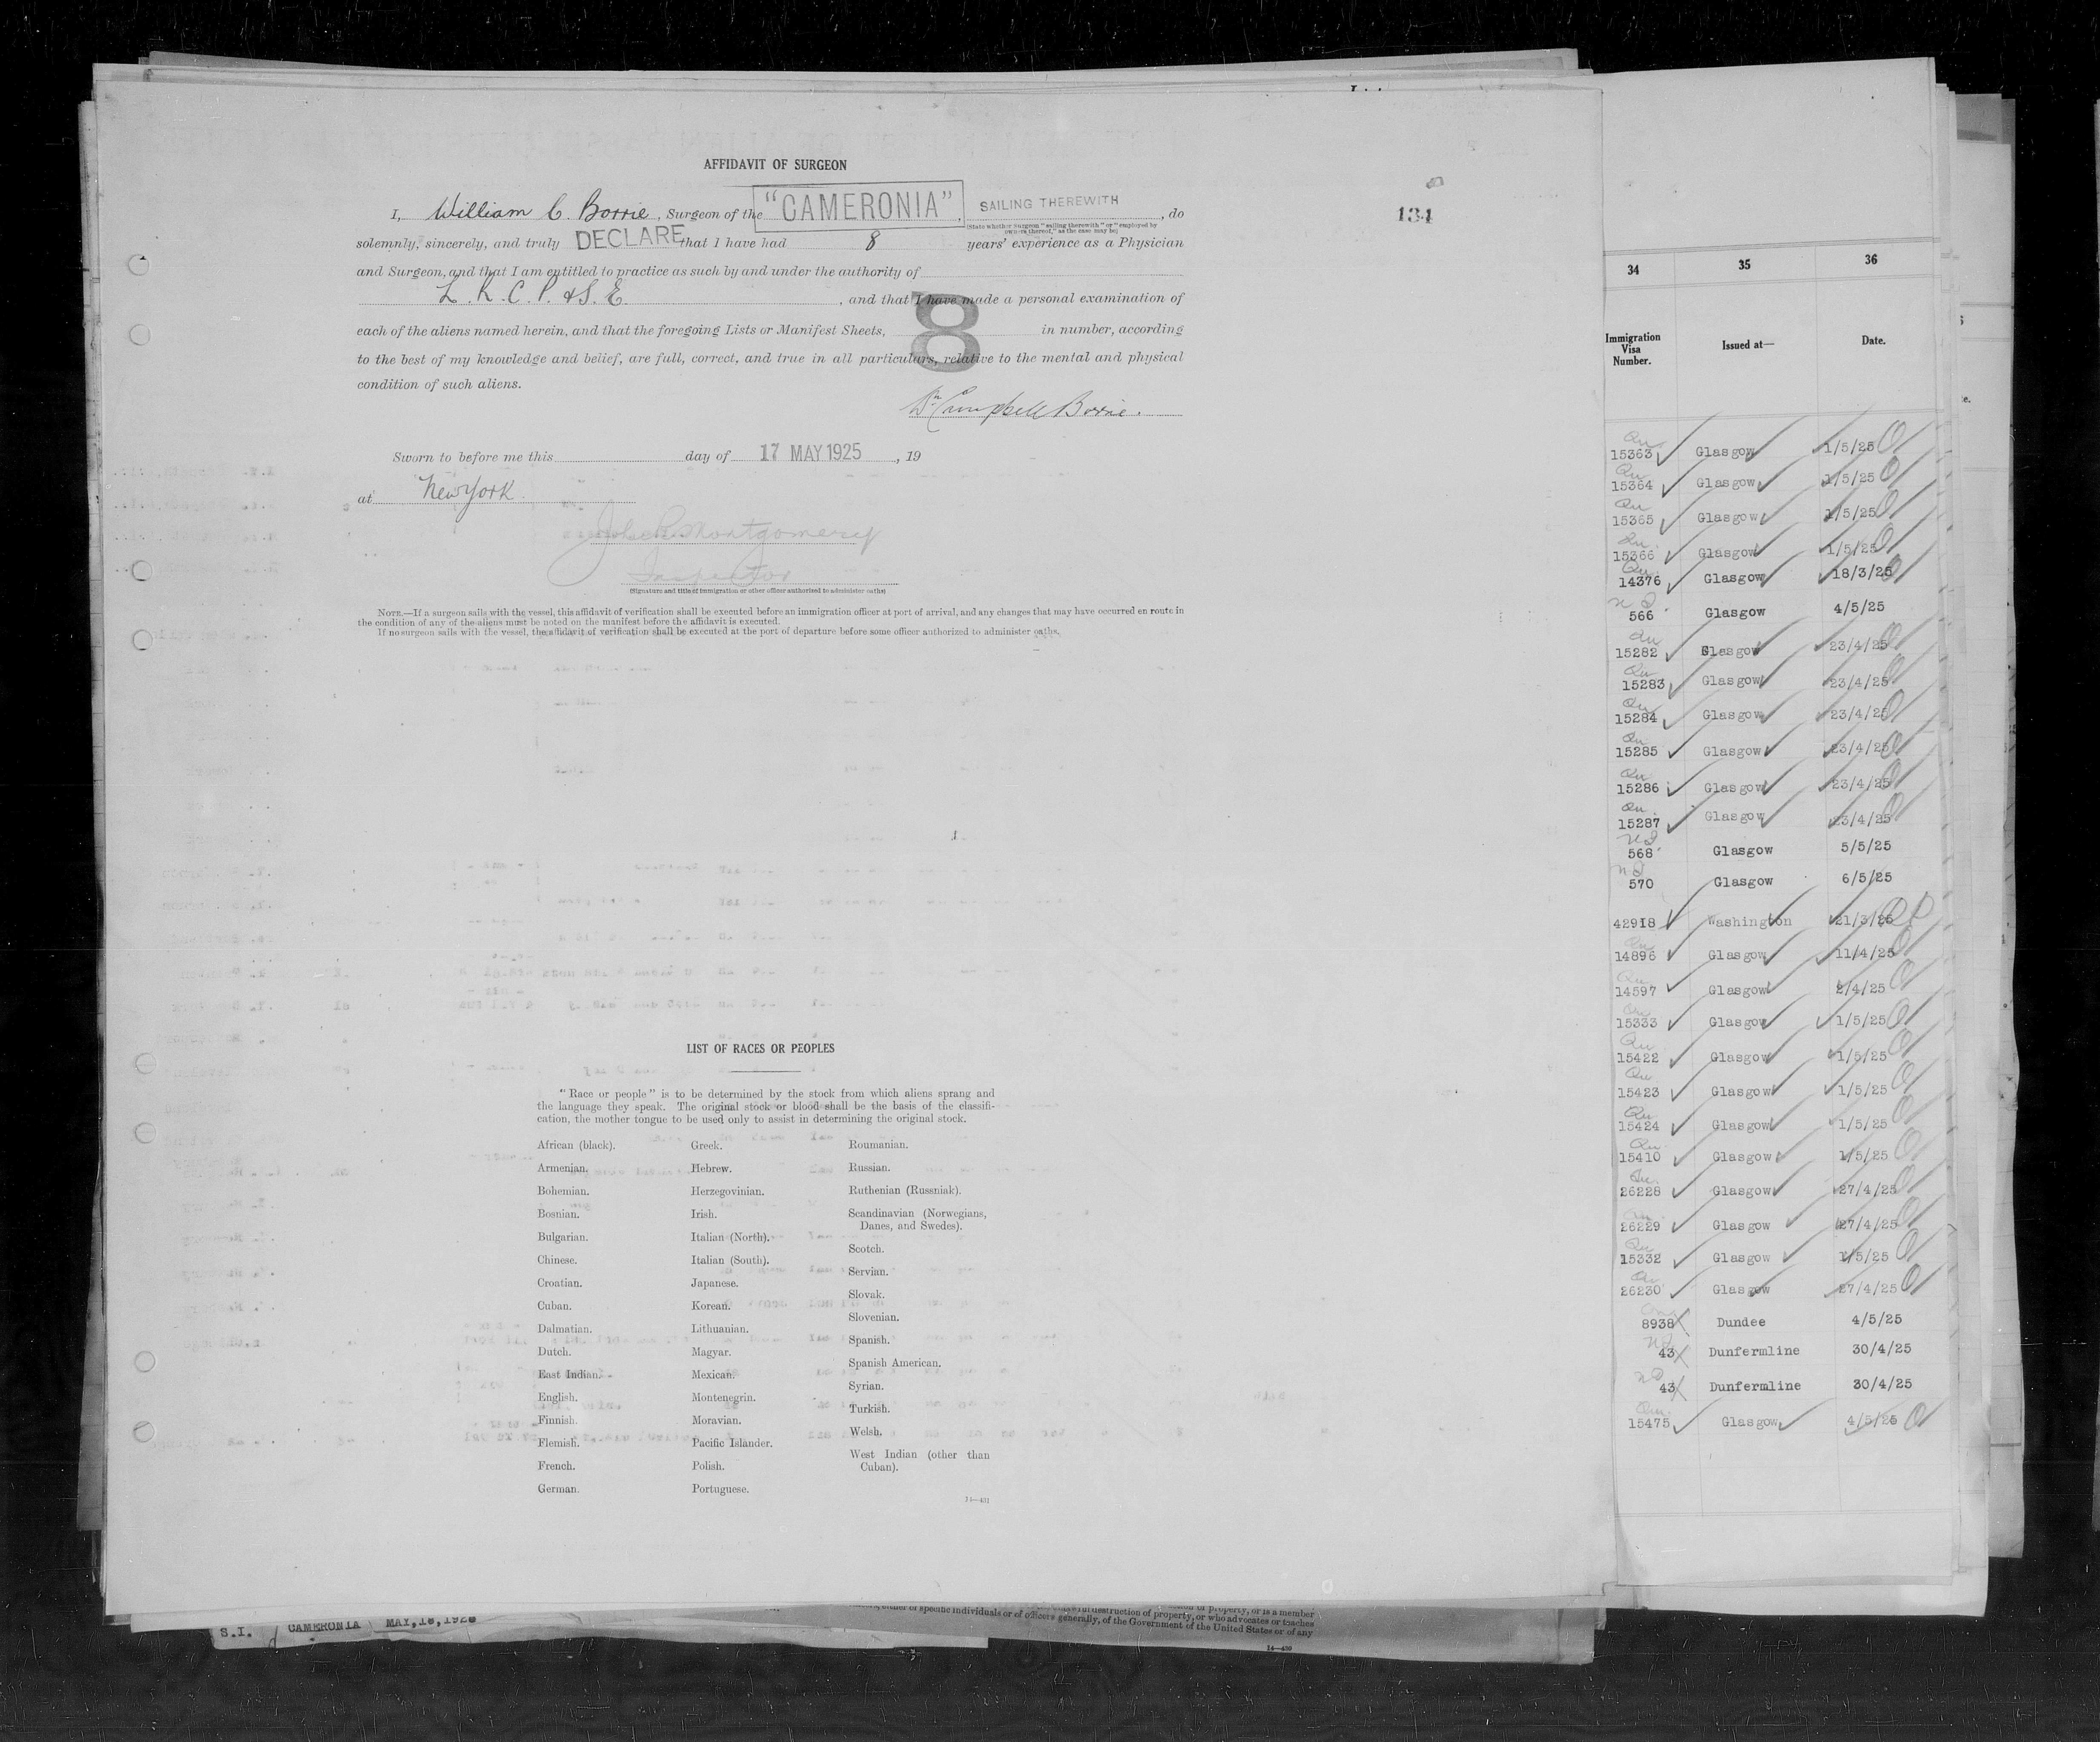 AFFIDAVIT OF SURGEON
I, William C. Borrie, Surgeon of the "CAMERONIA", SAILING THEREWITH, do
(State whether Surgeon "sailing therewith" or "employed by
owners thereof," as the case may be)
134
solemnly, sincerely, and truly DECLARE that I have had 8 years' experience as a Physician
and Surgeon, and that I am entitled to practice as such by and under the authority of
L.R.C.P. & S.E. , and that I have made a personal examination of
each of the aliens named herein, and that the foregoing Lists or Manifest Sheets, 8 in number, according
to the best of my knowledge and belief, are full, correct, and true in all particulars, relative to the mental and physical
condition of such aliens.
Wm Campbell Borrie.
Sworn to before me this day of 17 MAY 1925, 19
at New York
John R. Montgomery
Inspector
(Signature and title of immigration or other officer authorized to administer oaths)
NOTE.—If a surgeon sails with the vessel, this affidavit of verification shall be executed before an immigration officer at port of arrival, and any changes that may have occurred en route in
the condition of any of the aliens must be noted on the manifest before the affidavit is executed.
If no surgeon sails with the vessel, the affidavit of verification shall be executed at the port of departure before some officer authorized to administer oaths.
LIST OF RACES OR PEOPLES
"Race or people" is to be determined by the stock from which aliens sprang and
the language they speak. The original stock or blood shall be the basis of the classifi-
cation, the mother tongue to be used only to assist in determining the original stock.
African (black).
Armenian.
Bohemian.
Bosnian.
Bulgarian.
Chinese.
Croatian.
Cuban.
Dalmatian.
Dutch.
East Indian.
English.
Finnish.
Flemish.
French.
German.
Greek.
Hebrew.
Herzegovinian.
Irish.
Italian (North).
Italian (South).
Japanese.
Korean.
Lithuanian.
Magyar.
Mexican.
Montenegrin.
Moravian.
Pacific Islander.
Polish.
Portuguese.
Roumanian.
Russian.
Ruthenian (Russniak).
Scandinavian (Norwegians,
Danes, and Swedes).
Scotch.
Servian.
Slovak.
Slovenian.
Spanish.
Spanish American.
Syrian.
Turkish.
Welsh.
West Indian (other than
Cuban).
14—431
34 35 36
Immigration
Visa
Number.
Issued at—
Date.
Qu
15363 Glasgow 1/5/25
Qu
15364 Glasgow 1/5/25
Qu
15365 Glasgow 1/5/25
Qu
15366 Glasgow 1/5/25
Qu
14376 Glasgow 18/3/25
566 Glasgow 4/5/25
Qu
15282 Glasgow 23/4/25
Qu
15283 Glasgow 23/4/25
Qu
15284 Glasgow 23/4/25
Qu
15285 Glasgow 23/4/25
Qu
15286 Glasgow 23/4/25
Qu
15287 Glasgow 23/4/25
568 Glasgow 5/5/25
570 Glasgow 6/5/25
42918 Washington 21/3/25
Qu
14896 Glasgow 11/4/25
Qu
14597 Glasgow 2/4/25
Qu
15333 Glasgow 1/5/25
Qu
15422 Glasgow 1/5/25
Qu
15423 Glasgow 1/5/25
Qu
15424 Glasgow 1/5/25
Qu
15410 Glasgow 1/5/25
Qu
26228 Glasgow 27/4/25
26229 Glasgow 27/4/25
Qu
15332 Glasgow 1/5/25
Qu
26230 Glasgow 27/4/25
8938 Dundee 4/5/25
43 Dunfermline 30/4/25
43 Dunfermline 30/4/25
Qu
15475 Glasgow 4/5/25
S.I. CAMERONIA MAY,18,1925
of property, or is a member
either of specific individuals or of officers generally, of the Government of the United States or of any
14—430